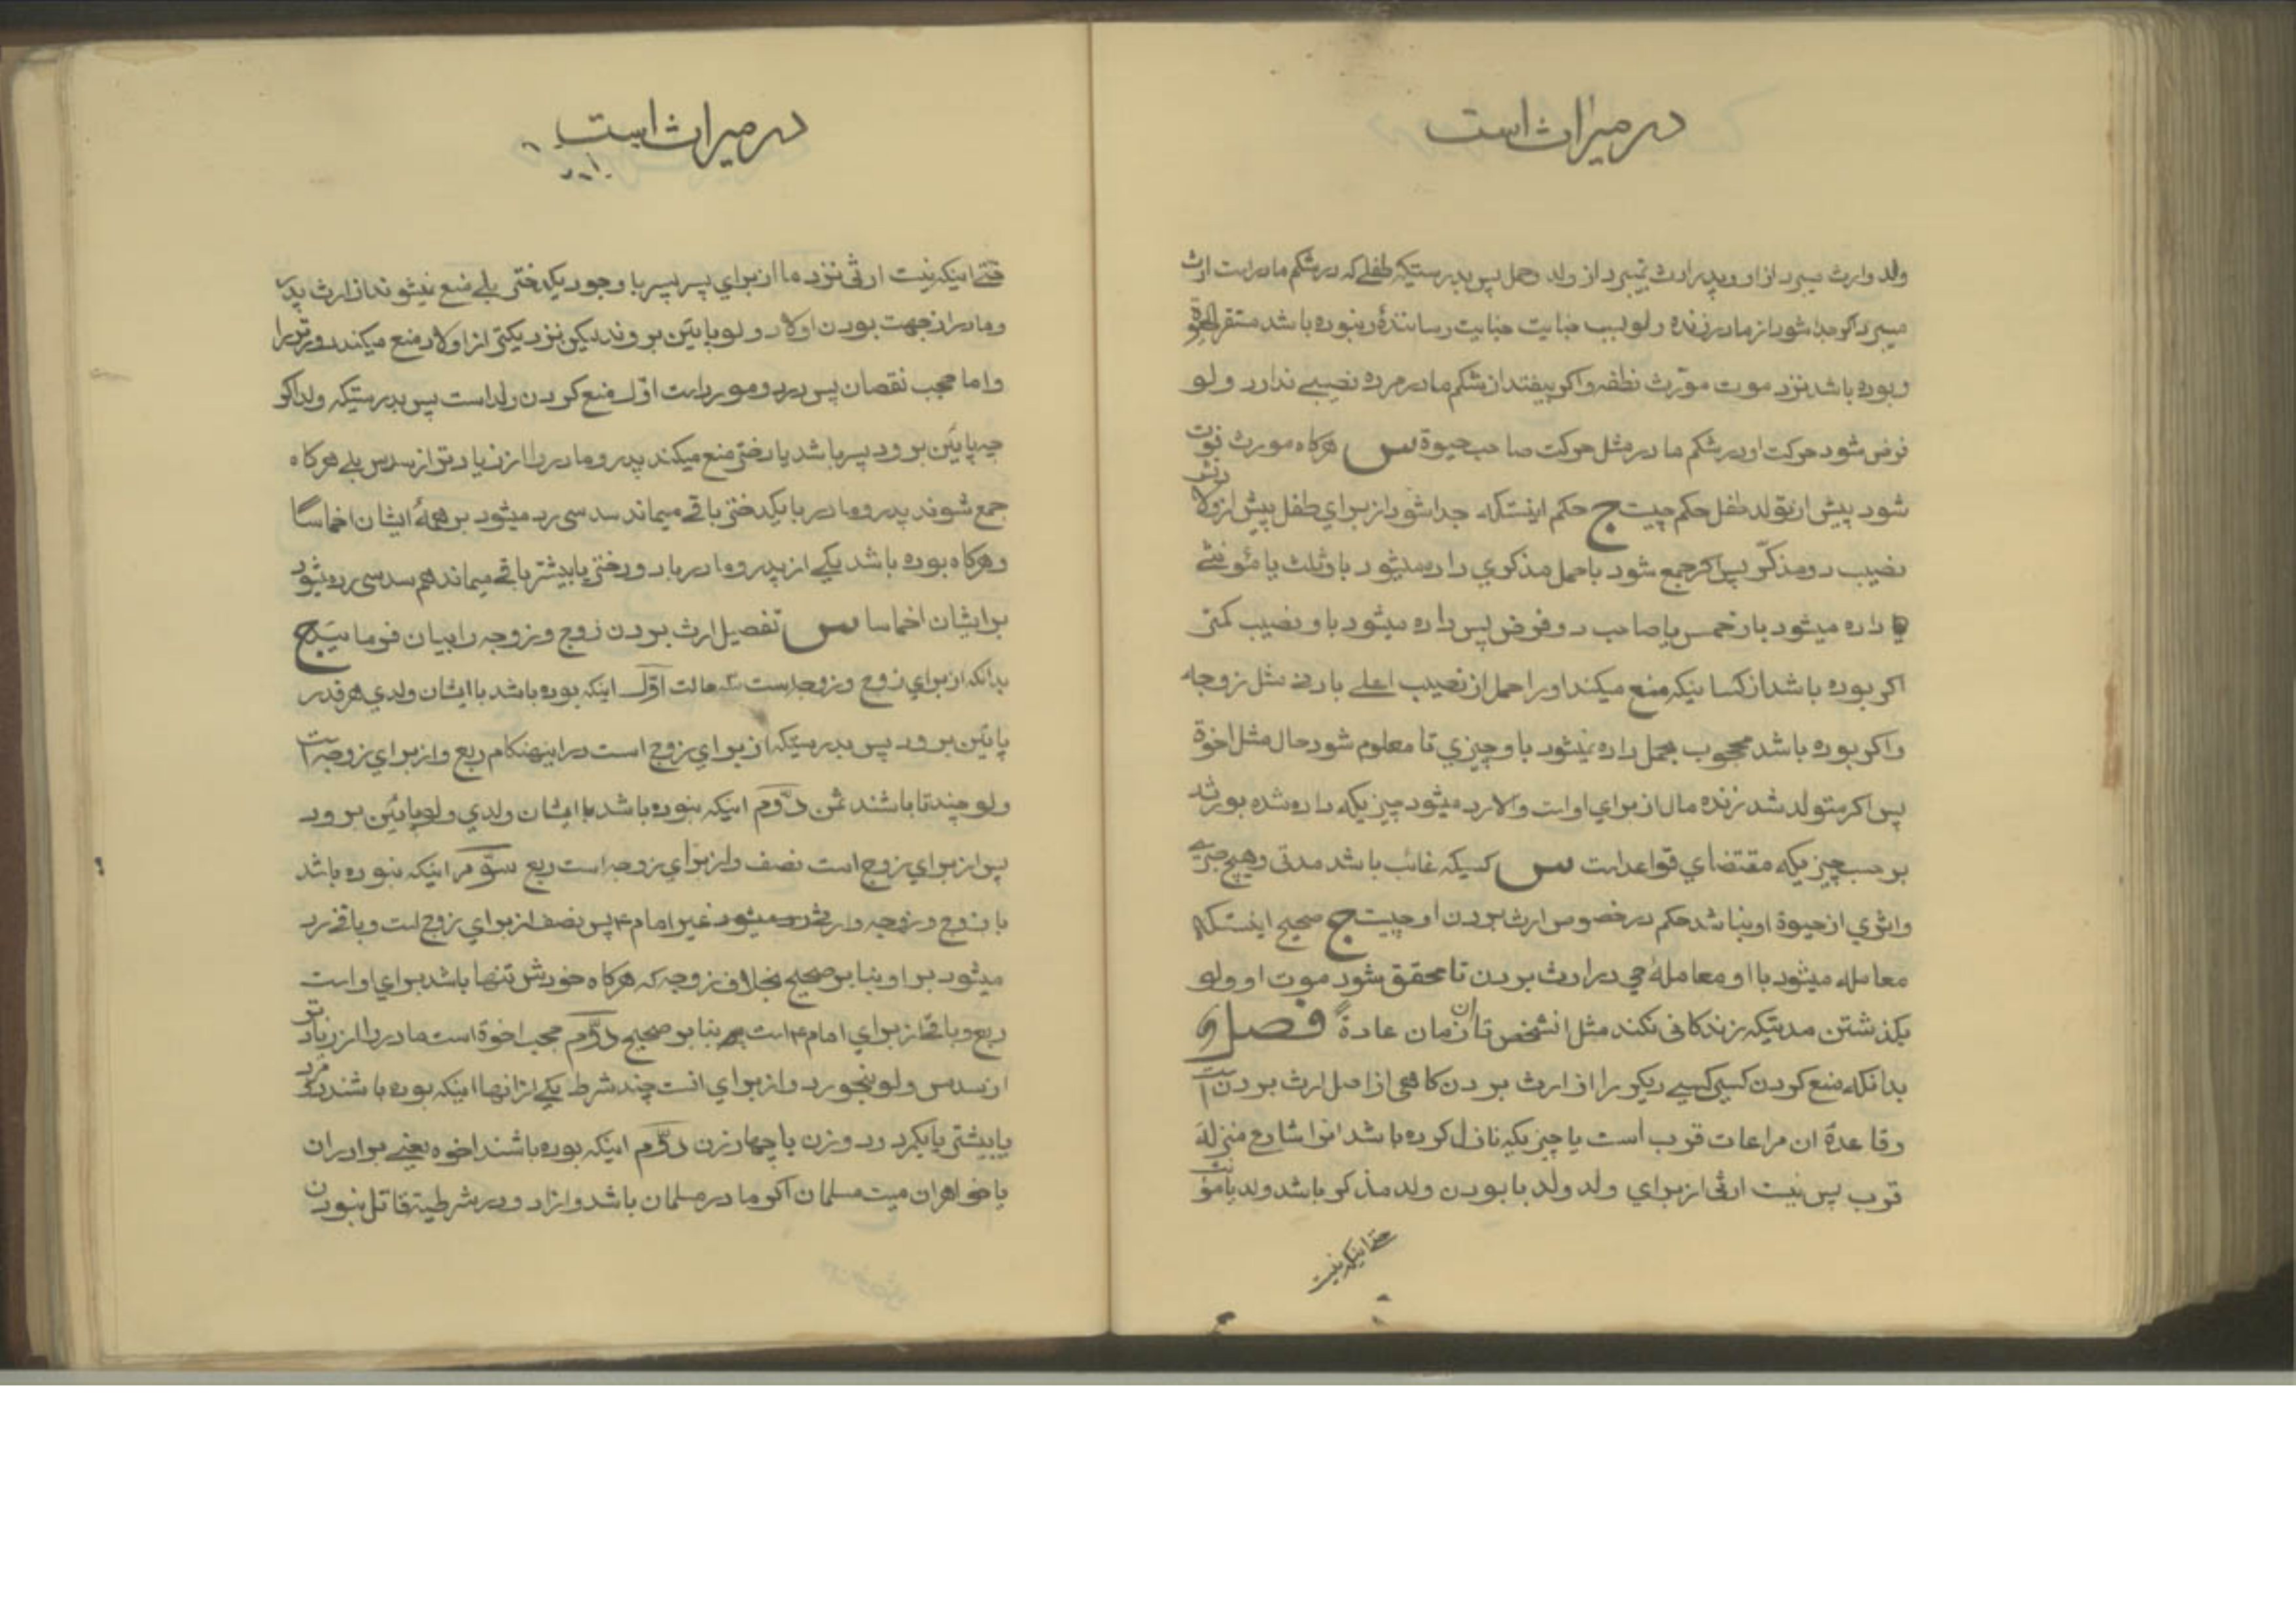 در میراث است
ولد وارث میبرد از او و پدر ارث نمیبرد از ولد حمل پس بدرستیکه طفلی که در شکم مادر است ارث
میبرد اکر جدا شود از مادر زنده ولو بسبب جنایت جنایت رسانندۀ و نبوده باشد مستقر الحیوة
و بوده باشد نزد موت مورّث نطفه و اکر بیفتد از شکم مادر مرده نصیبی ندارد ولو
فرض شود حرکت او در شکم مادر مثل حرکت صاحب حیوة س هرکاه مورث فوت
شود پیش از تولد طفل حکم چیست ج حکم اینستکه جدا شود از برای طفل پیش از ولادتش
نصیب دو مذکّر پس اکر جمع شود با حمل مذکری داده میشود باو ثلث یا مؤنثی
داده میشود باو خمس یا صاحب دو فرض پس داده میشود باو نصیب کمتر
اکر بوده باشد از کسانیکه منع میکند او را حمل از نصیب اعلی بادنی مثل زوجه
و اکر بوده باشد محجوب بحمل داده نمیشود باو چیزی تا معلوم شود حال مثل اخوة
پس اکر متولد شد زنده مال از برای او است والا رد میشود چیزیکه داده شده بورثه
بر حسب چیزیکه مقتضای قواعد است س کسیکه غائب باشد مدتی و هیچ خبری
و اثری از حیوة او نباشد حکم در خصوص ارث بردن او چیست ج صحیح اینستکه
معامله میشود با او معاملۀ حی در ارث بردن تا محقق شود موت او ولو
بکذشتن مدتیکه زندکانی نکند مثل انشخص تا ان زمان عادةً فصل
بدانکه منع کردن کسی کسی دیکر را از ارث بردن کاهی از اصل ارث بردن است
و قاعدۀ ان مراعات قرب است یا چیزیکه نازل کرده باشد انرا شارع منزلۀ
قرب پس نیست ارثی از برای ولد ولد با بودن ولد مذکر باشد ولد یا مؤنث
حتی اینکه نیست
در میراث است
حتی اینکه نیست ارثی نزد ما از برای پسر پسر با وجود یکدختر بلی منع نمیشوند از ارث پدر
و مادر از جهت بودن اولاد ولو پایئن بروند لیکن نزدیکتر از اولاد منع میکند دورتر را
و اما حجب نقصان پس در دو مورد است اوّل منع کردن ولد است پس بدرستیکه ولد اکر
چه پایئن برود پسر باشد یا دختر منع میکند پدر و مادر را از زیادتر از سدس بلی هرکاه
جمع شوند پدر و مادر با یکدختر باقی میماند سدسی رد میشود بر همۀ ایشان اخماسا
و هرکاه بوده باشد یکی از پدر و مادر با دو دختر یا بیشتر باقی میماند هم سدسی رد میشود
بر ایشان اخماسا س تفصیل ارث بردن زوج و زوجه را بیان فرمائید ج
بدانکه از برای زوج و زوجه است سه حالت اوّل اینکه بوده باشد با ایشان ولدی هرقدر
پایئن برود پس بدرستیکه از برای زوج است در اینهنکام ربع و از برای زوجه است
ولو چندتا باشند ثمن دوّم اینکه نبوده باشد با ایشان ولدی ولو پایئن برود
پس از برای زوج است نصف و از برای زوجه است ربع سوّم اینکه نبوده باشد
با زوج و زوجه وارثی غیر امام ۴ پس نصف از برای زوج است و باقی رد
میشود بر او بنا بر صحیح بخلاف زوجه که هرکاه خودش تنها باشد برای او است
ربع و باقی از برای امام ۴ است بنا بر صحیح دوّم حجب اخوة است مادر را از زیادتر
از سدس ولو نبحورد و از برای انست چند شرط یکی از انها اینکه بوده باشند دو مرد
یا بیشتر یا یکمرد و دو زن یا چهار زن دوّم اینکه بوده باشند اخوه یعنی برادران
یا خواهران میت مسلمان اکر مادر مسلمان باشد و ازاد و در شرطیة قاتل نبودن